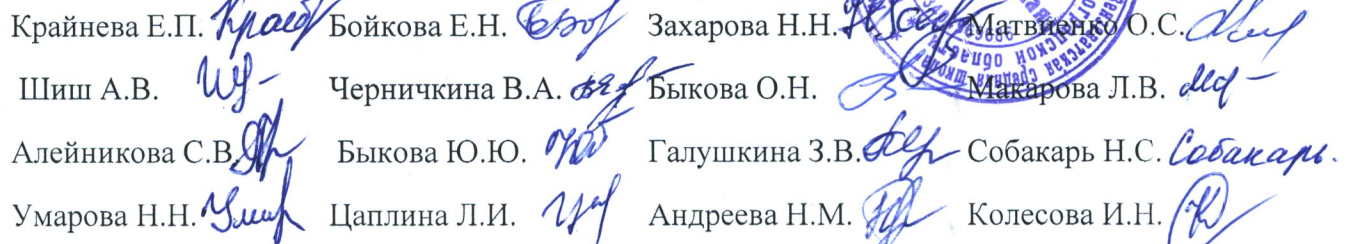 Крайнева Е.П. Бойкова Е.Н. Захарова Н.Н. Матвиенко О.С.
Шиш А.В. Черничкина В.А. Быкова О.Н. Макарова Л.В.
Алейникова С.В. Быкова Ю.Ю. Галушкина З.В. Собакарь Н.С. Собакарь.
Умарова Н.Н. Цаплина Л.И. Андреева Н.М. Колесова И.Н.
средняя школа
области